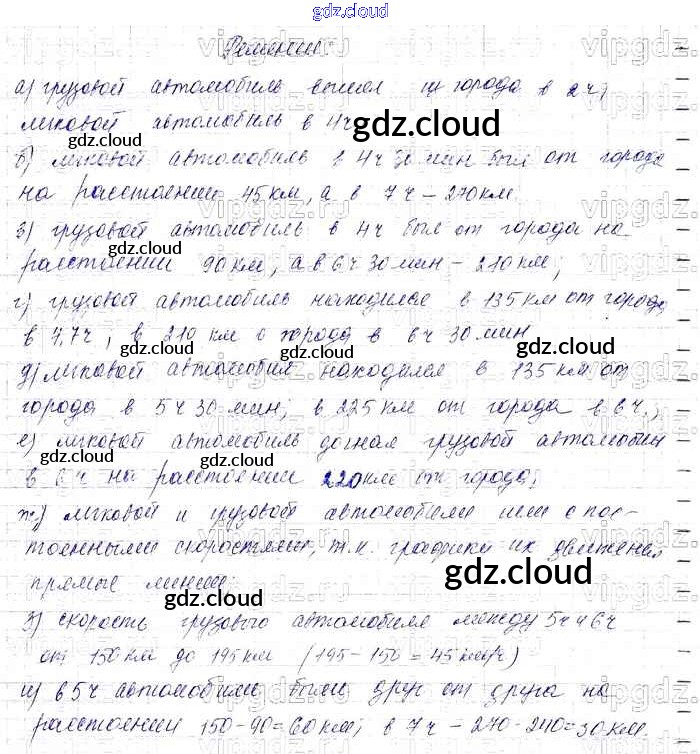 gdz.cloud
Решение:
а) грузовой автомобиль вышел из города в 2 ч,
легковой автомобиль в 4 ч
gdz.cloud
б) легковой автомобиль в 4 ч 30 мин был от города
на расстоянии 45 км, а в 7 ч – 270 км.
в) грузовой автомобиль в 4 ч был от города на
gdz.cloud
расстоянии 90 км, а в 6 ч 30 мин – 210 км;
gdz.cloud
г) грузовой автомобиль находился в 135 км от города
в 7,7 ч, в 210 км о города в 6 ч 30 мин
gdz.cloud gdz.cloud gdz.cloud
д) легковой автомобиль находился в 135 км от
города в 5 ч 30 мин; в 225 км от города в 6 ч.;
gdz.cloud
е) легковой автомобиль догнал грузовой автомобиль
gdz.cloud
в 6 ч на расстоянии 220 км от города;
ж) легковой и грузовой автомобили шли с пос-
тоянными скоростями, т.к. графики их движения
прямые линии.
gdz.cloud
gdz.cloud
з) скорость грузового автомобиля между 5 ч и 6 ч
от 150 км до 195 км (195 – 150 = 45 км/ч)
gdz.cloud
и) в 5 ч автомобили были друг от друга на
расстоянии 150-90=60 км; в 7 ч – 270-240=30 км.